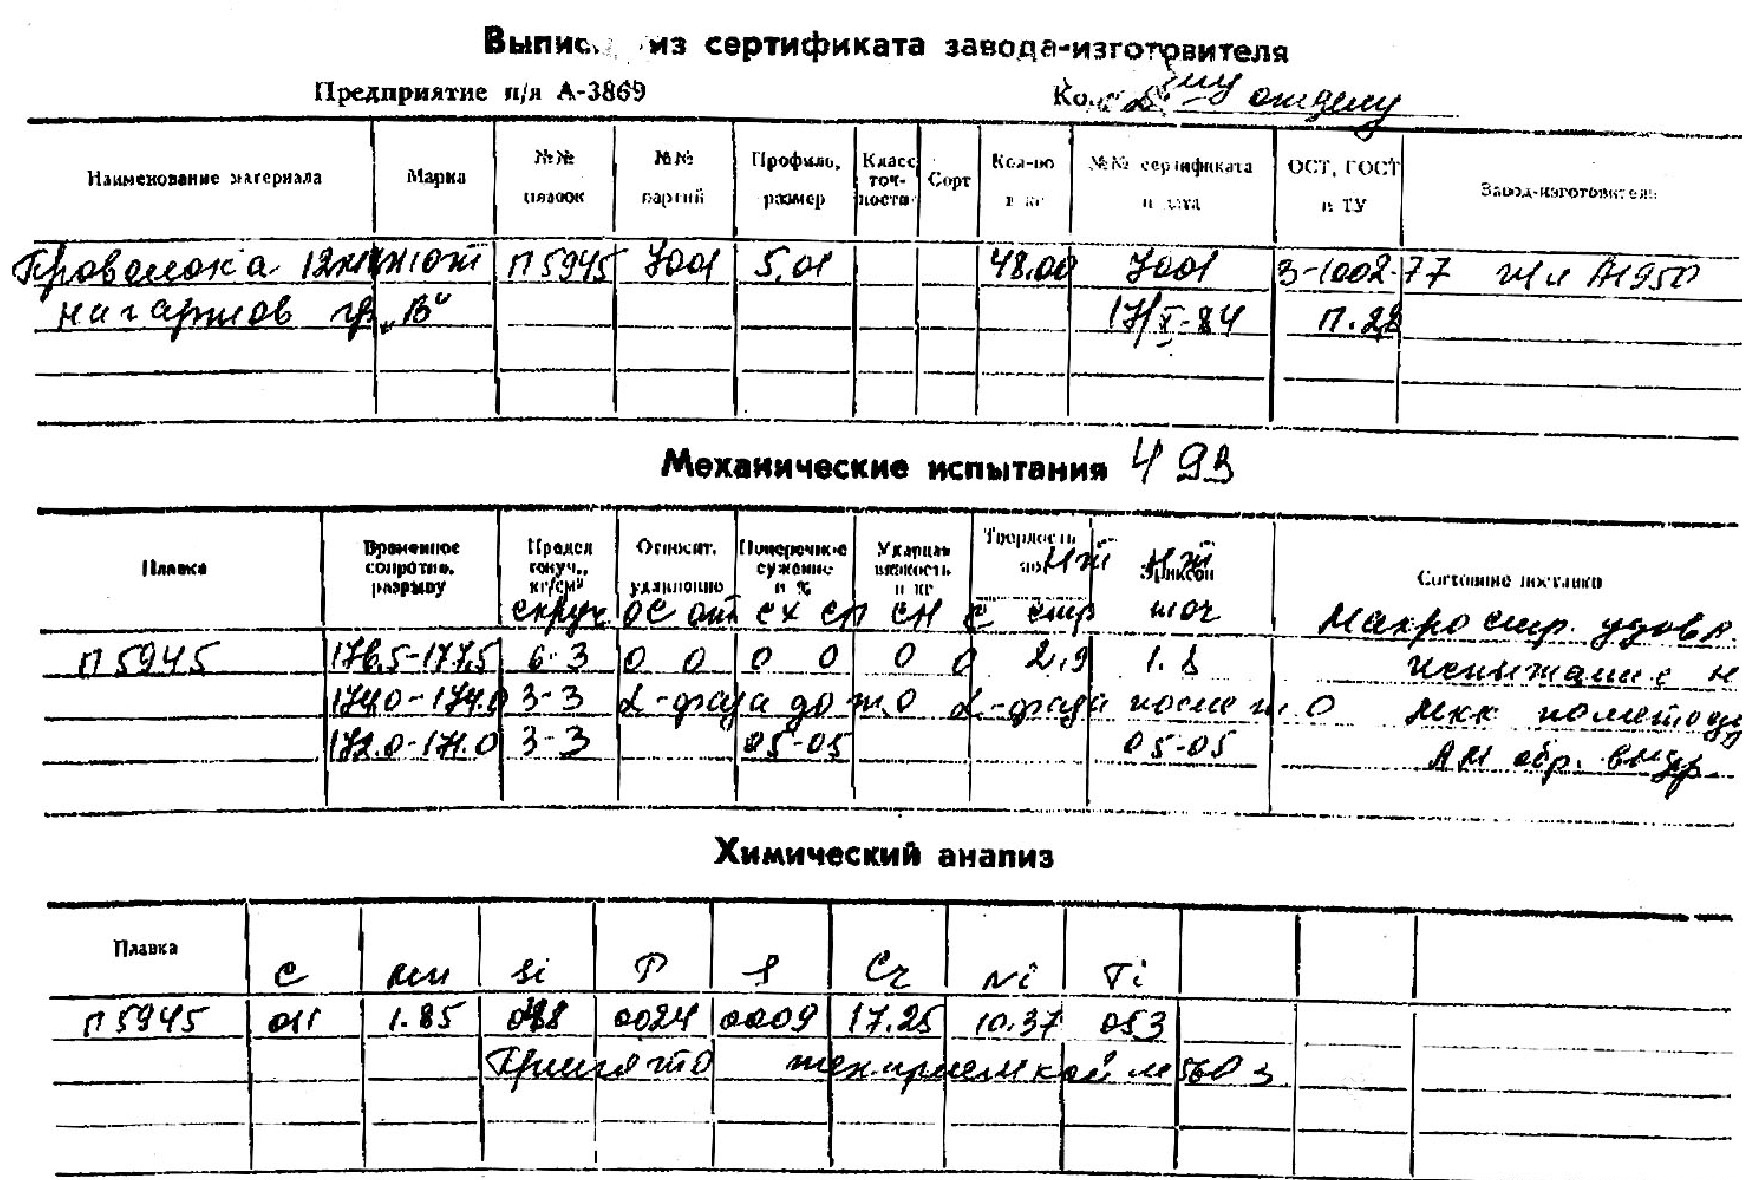 из сертификата завода-изготовителя
Предприятие п/я А-3869
отделу
Наименование материала Марка №№ плавок №№ партий Профиль, размер Класс точности Сорт Кол-во в кг №№ сертификата и дата ОСТ, ГОСТ и ТУ Завод-изготовитель
Проволока П5945 7001 5,01 48.00 7001 3-1002-77
нагартов гр. „В" 17/X-84 п. 2,8
Механические испытания
Плавка Временное сопротив. разрыву Предел текуч., кг/см² Относит. удлинение Поперечное сужение в % Ударная вязкость в кг Твердость Эриксон Состояние поставки
скруч ос от сх сп сн с стр точ Макростр. удовл.
П5945 176,5-177,5 6-3 0 0 0 0 0 0 2,9 1.8 испытание
174.0-174.0 3-3 α-фаза до т.о α-фаза после т.о МКК по методу
172.0-171.0 3-3 05-05 05-05 АМ обр. выдр
Химический анализ
Плавка C Mn Si P S Cr Ni Ti
П5945 011 1.85 0024 0009 17.25 10.37 053
Принято техприемкой